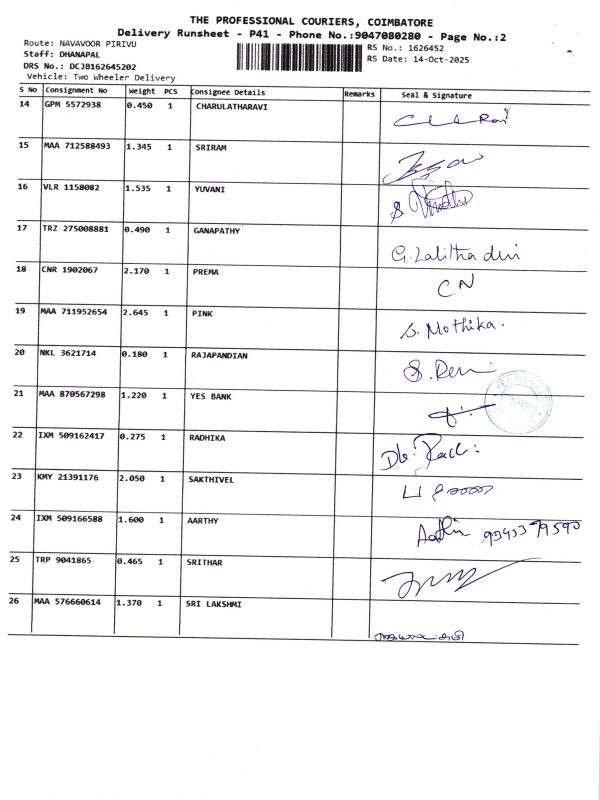 THE PROFESSIONAL COURIERS, COIMBATORE
Delivery Runsheet - P41 - Phone No.:9047080280 - Page No.:2
Route: NAVAVOOR PIRIVU
RS No.: 1626452
Staff: DHANAPAL
RS Date: 14-Oct-2025
DRS No.: DCJB162645202
Vehicle: Two Wheeler Delivery
S No Consignment No Weight PCS Consignee Details Remarks Seal & Signature
14 GPM 5572938 0.450 1 CHARULATHARAVI
15 MAA 712588493 1.345 1 SRIRAM
16 VLR 1158082 1.535 1 YUVANI
17 TRZ 275008881 0.490 1 GANAPATHY G. Lalitha devi
18 CNR 1902067 2.170 1 PREMA CN
19 MAA 711952654 2.645 1 PINK S. Mothika.
20 NKL 3621714 0.180 1 RAJAPANDIAN
21 MAA 870567298 1.220 1 YES BANK
22 IXM 509162417 0.275 1 RADHIKA
23 KMY 21391176 2.050 1 SAKTHIVEL
24 IXM 509166588 1.600 1 AARTHY
25 TRP 9041865 0.465 1 SRITHAR
26 MAA 576660614 1.370 1 SRI LAKSHMI